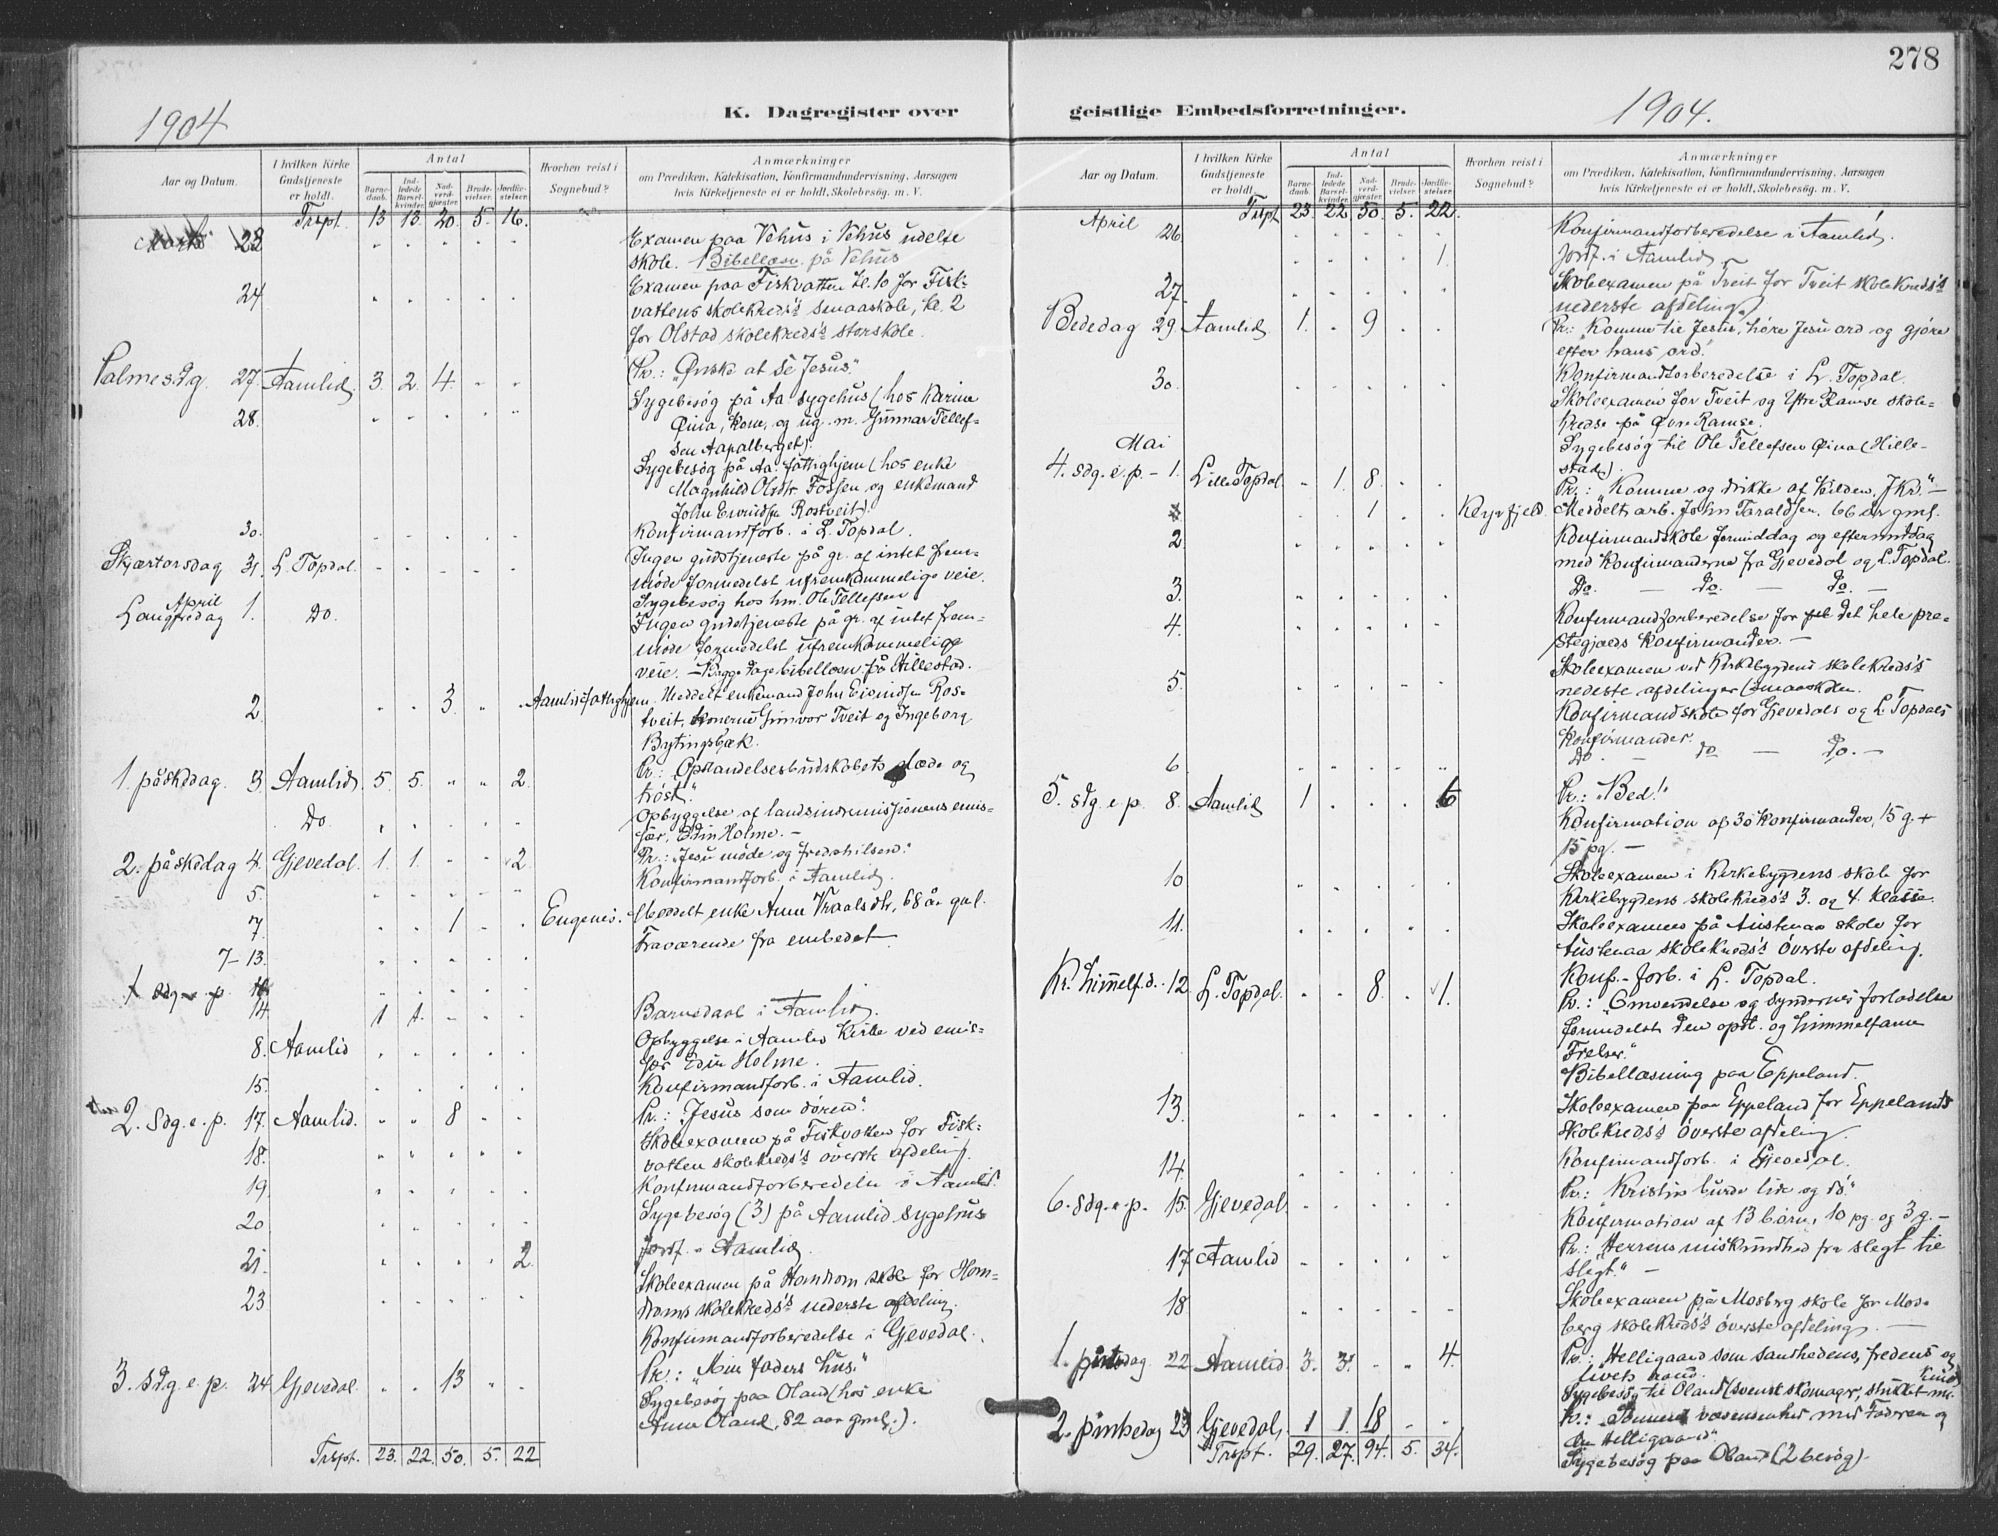 278
1904
K. Dagregister over
geistlige Embedsforretninger.
1904.
Aar og Datum.
I hvilken Kirke Gudstjeneste er holdt.
Antal
Barnedaab.
Indledede Barselkvinder.
Nadverdgjæster.
Brudevielser.
Jordfæstelser.
Hvorhen reist i Sognebud?
Anmærkninger
om Prædiken, Katekisation, Konfirmandundervisning, Aarsagen
hvis Kirketjeneste ei er holdt, Skolebesøg. m. V.
Trspt. 13 13. 20. 5. 16.
Marts 23 Examen paa Vehus i Vehus udelte
skole. Bibellæsn. på Vehus
24 Examen paa Fiskvatten kl. 10 for Fisk-
vattens skolekreds's smaaskole, kl. 2
for Olstad skolekreds's storskole.
Palmesdg. 27. Aamlid 3. 2. 4. Pr.: "Ønske at se Jesus."
28. Sygebesøg på Aa. sygehus (hos Karine
Øina, kone, og ug. m. Gunnar Tellef-
sen Aapalberget).
Sygebesøg på Aa. fattighjem (hos enke
Magnhild Olsdtr. Fossen og enkemand
John Eivindsen Rostveit).
30. Konfirmandforb. i L. Topdal.
Skjærtorsdag 31. L. Topdal. Ingen gudstjeneste på gr. af intet frem-
møde formedelst ufremkommelige veie.
Sygebesøg hos hm. Ole Tellefsen
April
Langfredag 1. Do. Ingen gudstjeneste på gr. af intet frem-
møde formedelst ufremkommelige
veie. – Begge dage bibellæsn på Hillestad.
2. 3. Aamlid fattighjem. Meddelt enkemand John Eivindsen Ros-
tveit, konerne Gunvor Tveit og Ingeborg
Bytingsbæk.
1. påskedag. 3. Aamlid. 5. 5. 2. Pr.: Opstandelsesbudskabets glæde og
trøst."
Do. Opbyggelse af landsindremissionens emis-
sær, Edin Holme. –
2. påskedag 4. Gjevedal. 1. 1. 2. Pr.: "Jesu møde og fredshilsen."
5. Konfirmandforb. i Aamlid.
7. 1 Engenes. Meddelt enke Anne Vraalsdtr, 68 år gml.
7–13. Fraværende fra embedet
1 sdg. e. p.
14. 1 1. Barnedaab i Aamlid.
8. Aamlid Opbyggelse i Aamlid Kirke ved emis-
sær Edin Holme.
15. Konfirmandforb. i Aamlid.
2. Sdg. e. p. 17. Aamlid. 8 Pr.: "Jesus som døren".
18. Skoleexamen på Fiskvatten for Fisk-
vatten skolekreds's øverste afdeling.
19. Konfirmandforberedelse i Aamlid.
20 Sygebesøg (3) på Aamlid sygehus
21. 2 Jordf. i Aamlid.
23 Skoleexamen på Homdrom skole for Hom-
droms skolekreds's nederste afdeling.
Konfirmandforberedelse i Gjevedal.
3. Sdg. e. p. 24. Gjevedal. 13 Pr.: "Min faders hus."
Sygebesøg paa Oland (hos enke
Anne Oland, 82 aar gml.).
Trspt. 23. 22. 50. 5. 22
Aar og Datum.
I hvilken Kirke Gudstjeneste er holdt.
Antal
Barnedaab.
Indledede Barselkvinder.
Nadverdgjæster.
Brudevielser.
Jordfæstelser.
Hvorhen reist i Sognebud?
Anmærkninger
om Prædiken, Katekisation, Konfirmandundervisning, Aarsagen
hvis Kirketjeneste ei er holdt, Skolebesøg. m. V.
Trspt. 23. 22. 50. 5. 22.
April 26. Konfirmandforberedelse i Aamlid.
1. Jordf. i Aamlid
27. Skoleexamen på Tveit for Tveit skolekreds's
nederste afdeling.
Bededag 29 Aamlid 1. 9. Pr.: Komme til Jesus, høre Jesu ord og gjøre
efter hans ord.
30. Konfirmandforberedelse i L. Topdal.
Skoleexamen for Tveit og Ytre Ramse skole-
kredse på Øvre Ramse.
Sygebesøg til Ole Tellefsen Øina (Hille-
stad).
Mai
4. sdg. e. p. – 1. Lille Topdal 1. 8. Pr.: "Komme og drikke af kilden, J. Kr." –
1 Kyrfjeld. Meddelt arb. John Taraldsen. 66 år gml.
2 Konfirmandskole formiddag og eftermiddag
med konfirmanderne fra Gjevedal og L. Topdal.
3. Do. – Do. – Do. –
4. Konfirmandforberedelse for det hele præ-
stegjælds konfirmander. –
5. Skoleexamen ved Kirkebygdens skolekreds's
nedeste afdelinger (smaaskolen.
Konfirmandskole for Gjevedals og L. Topdals
konfirmander.
6 Do. Do – Do. –
5. sdg. e. p. 8. Aamlid 1 6 Pr.: "Bed!"
Konfirmation af 30 konfirmander, 15 g. +
15 pg. –
10 Skoleexamen i Kirkebygdens skole for
Kirkebygdens skolekreds's 3. og 4. klasse.
11. Skoleexamen på Austenaa skole for
Austenaa skolekreds's øverste afdeling.
Konf.-forb. i L. Topdal.
Kr. himmelf.d. 12. L. Topdal. 8. 1. Pr.: "Omvendelse og syndernes forladelse
formedelst den opst. og himmelfarne
Frelser."
Bibellæsning paa Eppeland.
13. Skoleexamen paa Eppeland for Eppelands
skolekreds's øverste afdeling.
14. Konfirmandforb. i Gjevedal.
6. Sdg. e. p. 15. Gjevedal. Pr.: "Kristus burde lide og dø."
Konfirmation af 13 børn, 10 pg. og 3 g. –
17 Aamlid Pr.: "Herrens miskundhed fra slegt til
slegt." –
18 Skoleexamen på Mosberg skole for Mos-
berg skolekreds's øverste afdeling. –
1. pintsdag. 22. Aamlid. 3. 3. 4. Pr.: Helligaand som sandhedens, fredens og
livets aand.
Sygebesøg til Oland (svensk skomager,
2. pinsedag 23 Gjevedal. 1 1. 18 Pr.: væsensenhed med Faderen og
den Helligaand".
Sygebesøg paa Oland (2 besøg).
Trspt. 29. 27. 94. 5. 34.